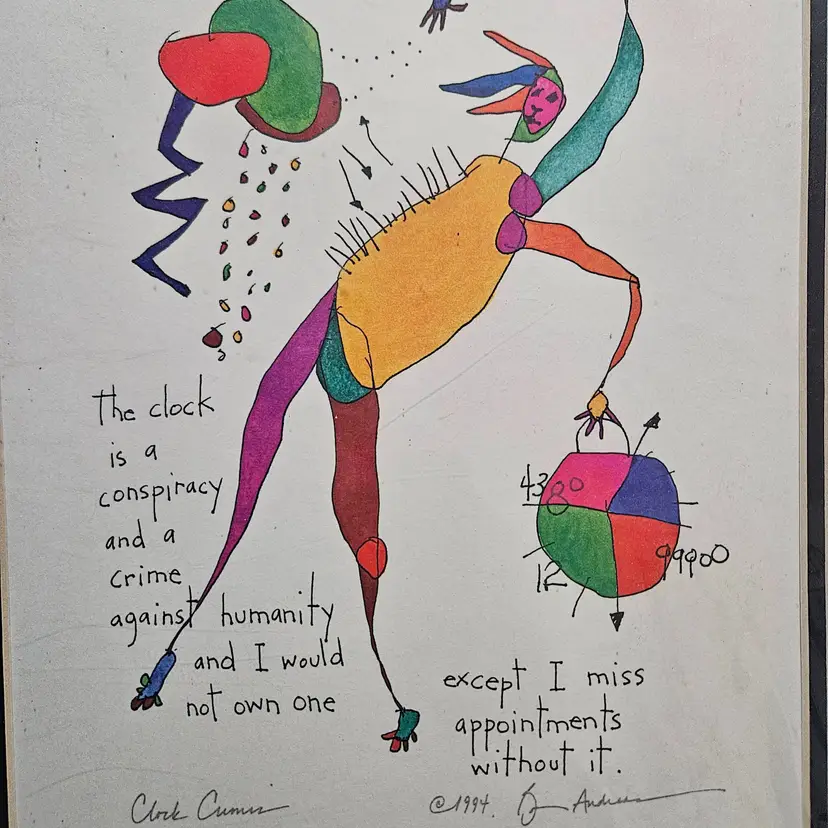 the clock
is a
conspiracy
and a
crime
against humanity
and I would
not own one
except I miss
appointments
without it.
4380
12
99900
Clock Crimes
©1994. Brian Andreas